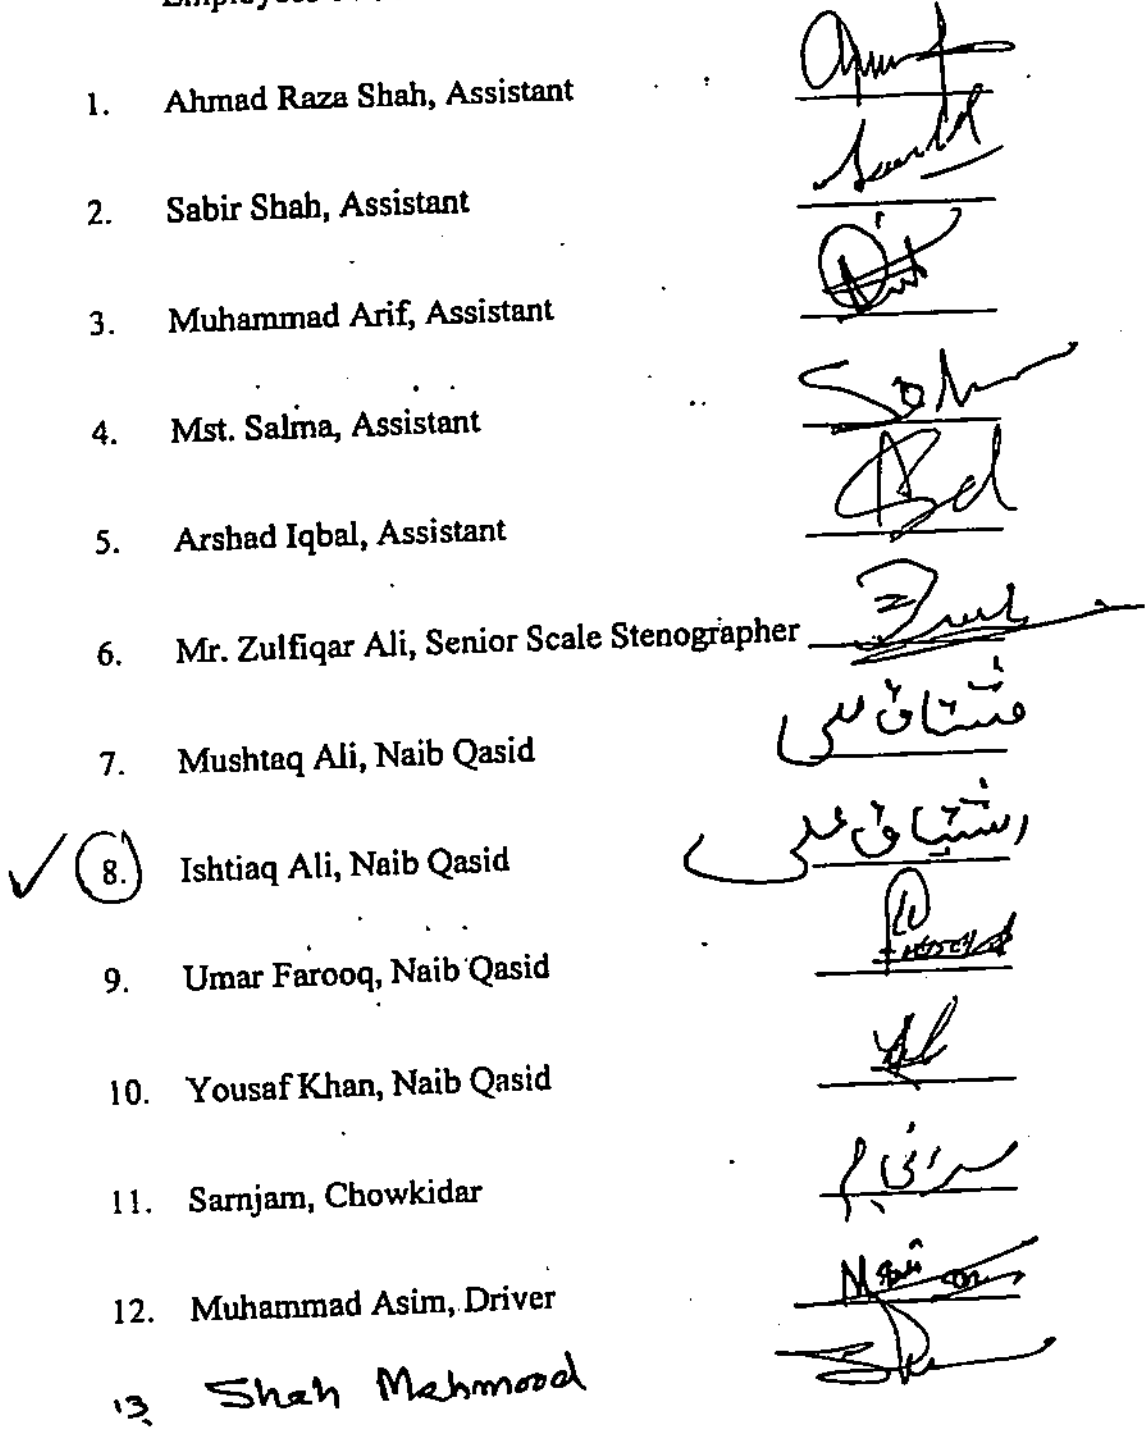 1. Ahmad Raza Shah, Assistant :
2. Sabir Shah, Assistant
3. Muhammad Arif, Assistant
4. Mst. Salma, Assistant
5. Arshad Iqbal, Assistant
6. Mr. Zulfiqar Ali, Senior Scale Stenographer
7. Mushtaq Ali, Naib Qasid مشتاق علی
8. Ishtiaq Ali, Naib Qasid اشتیاق علی
9. Umar Farooq, Naib Qasid
10. Yousaf Khan, Naib Qasid
11. Sarnjam, Chowkidar سرانجام
12. Muhammad Asim, Driver
13. Shah Mehmood